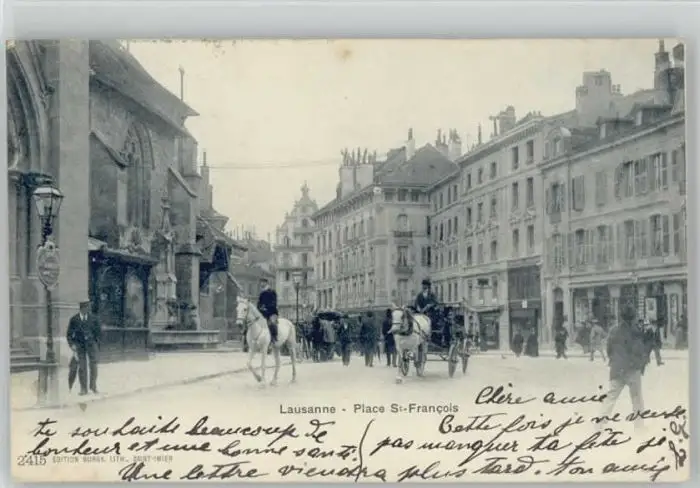 Lausanne - Place St-François
Chère amie
Cette fois je ne veux
pas manquer ta fête et je
te souhaite beaucoup de
bonheur et une bonne santé
Une lettre viendra plus tard. ton amie
2415 EDITION BURGY, LITH., SAINT-IMIER